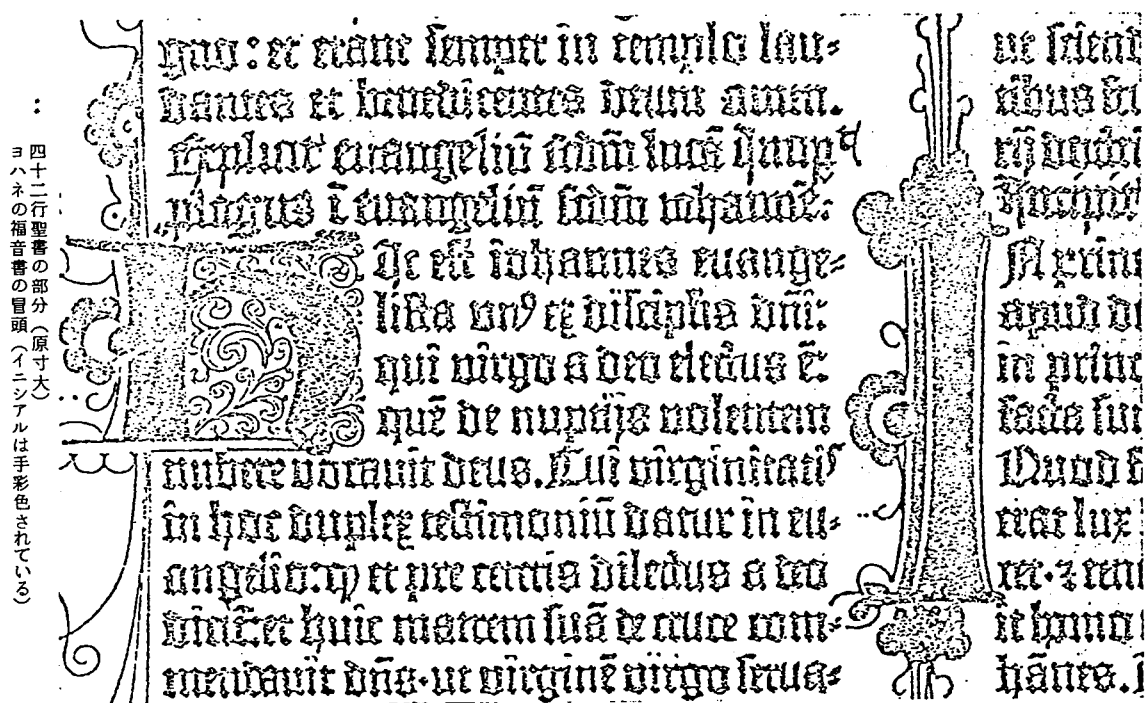 四十二行聖書の部分（原寸大）
ヨハネの福音書の冒頭（イニシアルは手彩色されている）
gno : et erant semper in templo lau⸗
dantes et benedicentes deum amen.
Explicit euangeliū scdm lucā Incipit
plogus ī euangeliū scdm iohannē.
Hic est iohannes euange⸗
lista unꝰ ex discipulis dni:
qui virgo a deo electus ē:
quē de nuptijs volentem
nubere vocauit deus. Cui virginitatis
in hoc duplex testimoniū datur in eu⸗
angelio: ꝙ et pre ceteris dilectus a deo
dicit: et huic matrem suā de cruce com⸗
mendauit dns. ut virginē virgo serua⸗
In prin
apud d
in princ
facta su
Quod
erat lux